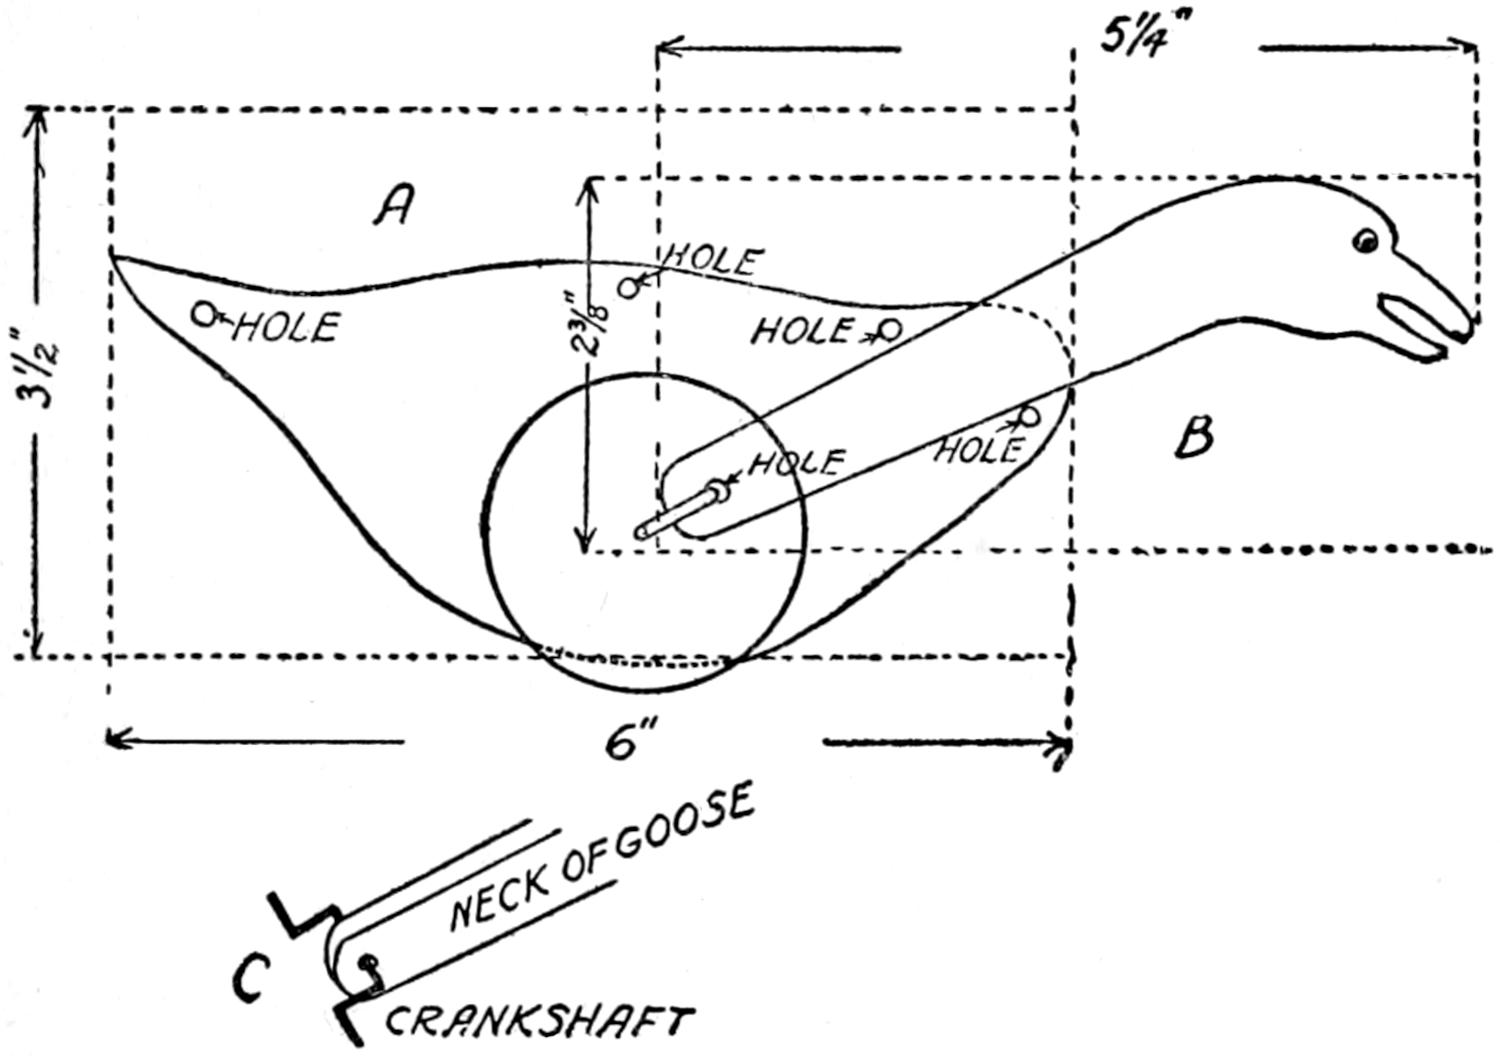 5 1/4"
A
HOLE
HOLE
HOLE
2 3/8"
3 1/2"
HOLE
HOLE
B
6"
NECK OF GOOSE
C
CRANKSHAFT